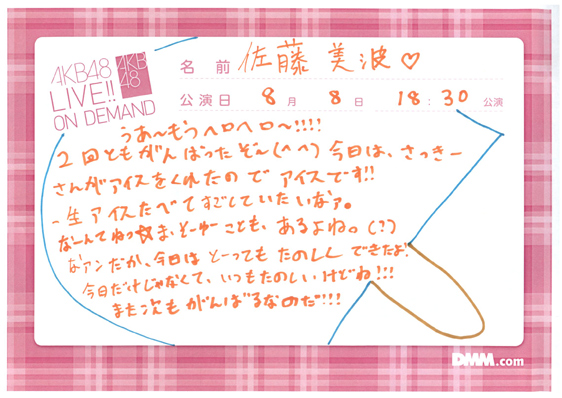 AKB48
LIVE!!
ON DEMAND
AKB
48
名前 佐藤美波♡
公演日 8月 8日 18:30 公演
うあ〜もうヘロヘロ〜!!!!
2回ともがんばったぞん(^^)今日は、さっきー
さんがアイスをくれたので アイスです!!
一生アイスたべてすごしていたいなァ。
なーんてねっ☆ま、そーゆーことも、あるよねっ(?)
なアンだか、今日は とーっても たのしく できたよ!
今日だけじゃなくて、いつもたのしいけどね!!!
また次も がんばるなのだ!!!
DMM.com